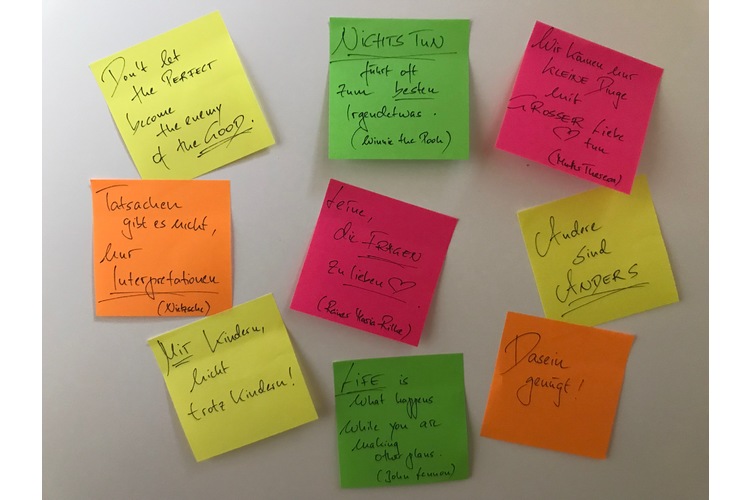 Don't let
the PERFECT
become
the enemy
of the GOOD.
NICHTS TUN
führt oft
zum besten
Irgendetwas.
(Winnie the Pooh)
Wir können nur
KLEINE Dinge
mit
GROSSER Liebe
♡ tun
(Mutter Theresa)
Tatsachen
gibt es nicht,
nur
Interpretationen
(Nietzsche)
Lerne,
die FRAGEN
zu lieben ♡
(Rainer Maria Rilke)
Andere
sind
ANDERS
MIT Kindern,
nicht
trotz Kindern!
LIFE is
what happens
while you are
making
other plans.
(John Lennon)
Dasein
genügt!